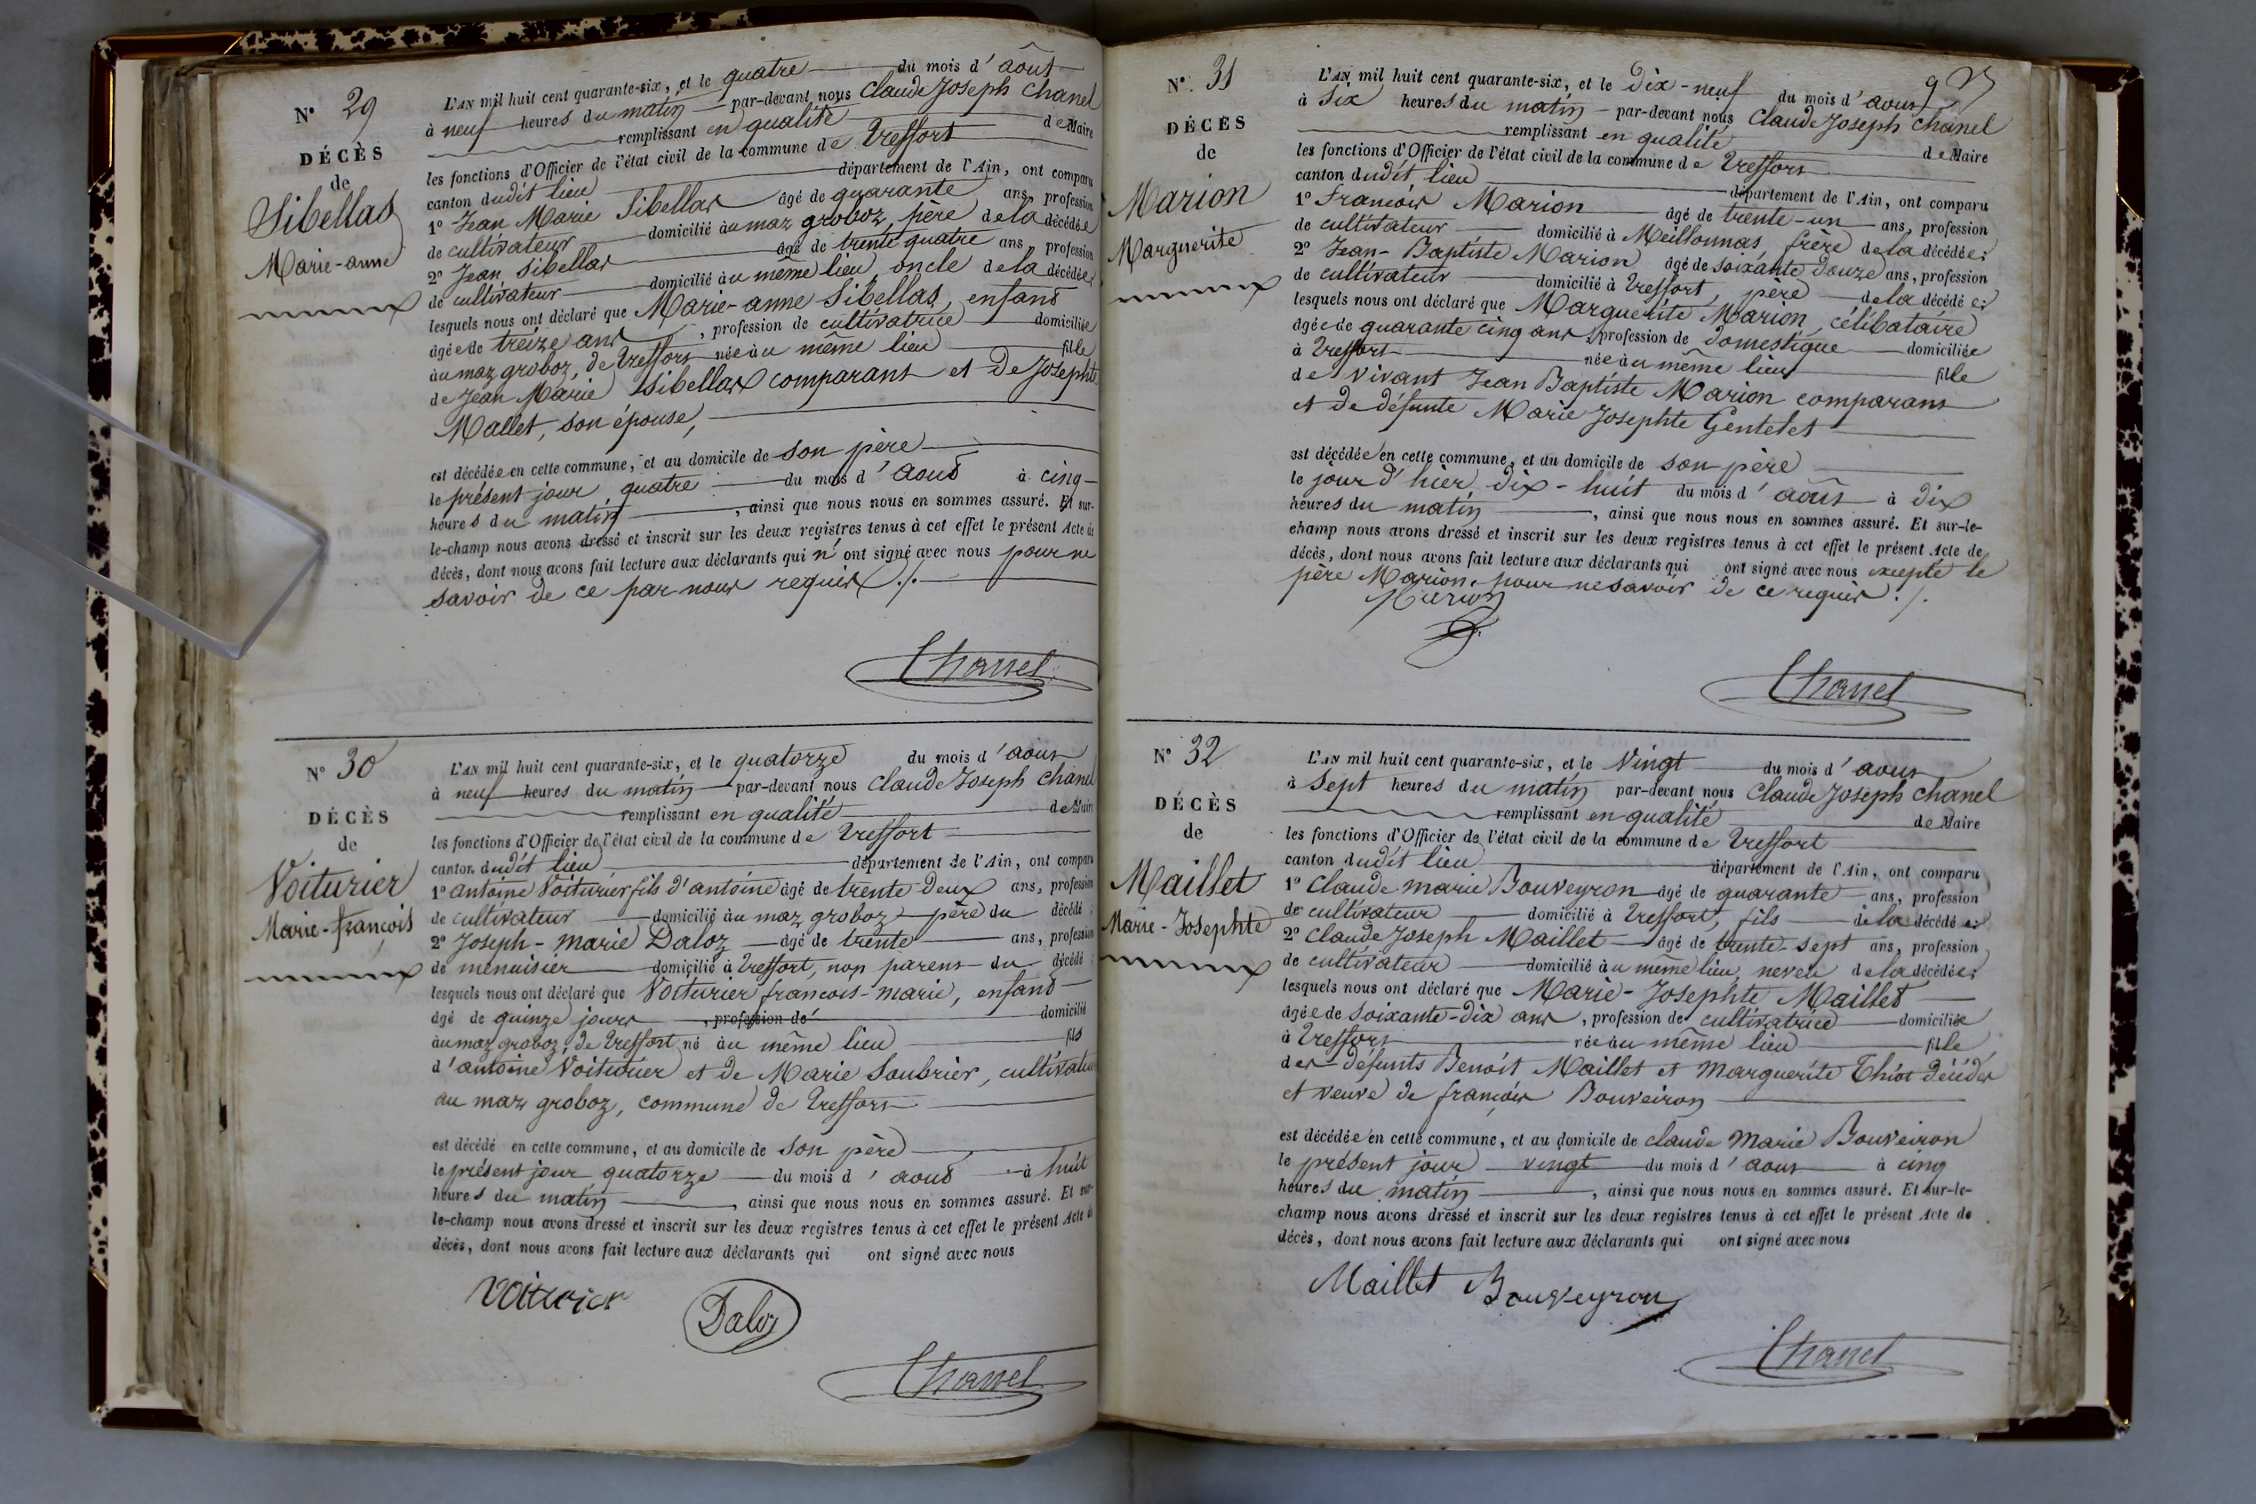 N° 29
DÉCÈS
de
Sibellas
Marie-anne
L'AN mil huit cent quarante-six, et le quatre du mois d'août
à neuf heures du matin par-devant nous Claude Joseph Chanel
remplissant en qualité de Maire
les fonctions d'Officier de l'état civil de la commune de Treffort
canton dudit lieu département de l'Ain, ont comparu
1° Jean Marie Sibellas âgé de quarante ans, profession
de cultivateur domicilié au maz groboz, père de la décédée
2° Jean Sibellas âgé de trente quatre ans, profession
de cultivateur domicilié au même lieu, oncle de la décédée;
lesquels nous ont déclaré que Marie-anne Sibellas, enfant
âgée de treize ans, profession de cultivatrice domiciliée
au maz groboz, de Treffort née au même lieu fille
de Jean Marie Sibellas comparant et de Josephte
Mallet, son épouse,
est décédée en cette commune, et au domicile de son père
le présent jour quatre du mois d'aout à cinq
heures du matin, ainsi que nous nous en sommes assuré. Et sur-
le-champ nous avons dressé et inscrit sur les deux registres tenus à cet effet le présent Acte de
décès, dont nous avons fait lecture aux déclarants qui n'ont signé avec nous pour ne
savoir de ce par nous requis ./.
Chanel
N° 30
DÉCÈS
de
Voiturier
Marie-françois
L'AN mil huit cent quarante-six, et le quatorze du mois d'aout
à neuf heures du matin par-devant nous Claude Joseph Chanel
remplissant en qualité de Maire
les fonctions d'Officier de l'état civil de la commune de Treffort
canton dudit lieu département de l'Ain, ont comparu
1° antoine Voiturier fils d'antoine âgé de trente Deux ans, profession
de cultivateur domicilié au maz groboz père du décédé;
2° Joseph-marie Daloz âgé de trente ans, profession
de menuisier domicilié à Treffort, non parent du décédé;
lesquels nous ont déclaré que Voiturier francois-marie, enfant
âgé de quinze jours, profession de domicilié
au maz groboz, de Treffort né au même lieu fils
d'antoine Voiturier et de Marie Soubrier, cultivateurs
au maz groboz, commune de Treffort
est décédé en cette commune, et au domicile de son père
le présent jour quatorze du mois d'aout à huit
heures du matin, ainsi que nous nous en sommes assuré. Et sur-
le-champ nous avons dressé et inscrit sur les deux registres tenus à cet effet le présent Acte de
décès, dont nous avons fait lecture aux déclarants qui ont signé avec nous
Voiturier
Daloz
Chanel
N° 31
DÉCÈS
de
Marion
Marguerite
L'AN mil huit cent quarante-six, et le Dix-neuf du mois d'aout
à Six heures du matin par-devant nous Claude Joseph Chanel
remplissant en qualité de Maire
les fonctions d'Officier de l'état civil de la commune de Treffort
canton dudit lieu département de l'Ain, ont comparu
1° francois Marion âgé de trente-un ans, profession
de cultivateur domicilié à Meillonnas, frère de la décédée;
2° Jean-Baptiste Marion âgé de soixante Douze ans, profession
de cultivateur domicilié à Treffort, père de la décédée;
lesquels nous ont déclaré que Marguerite Marion, célibataire
âgée de quarante cinq ans, profession de domestique domiciliée
à Treffort née au même lieu fille
de vivant Jean Baptiste Marion comparant
et de défunte Marie Josephte Gentelet
est décédée en cette commune, et au domicile de son père
le jour d'hier dix-huit du mois d'août à dix
heures du matin, ainsi que nous nous en sommes assuré. Et sur-le-
champ nous avons dressé et inscrit sur les deux registres tenus à cet effet le présent Acte de
décès, dont nous avons fait lecture aux déclarants qui ont signé avec nous excepté le
père Marion, pour ne savoir de ce requis ./.
Marion
Chanel
N° 32
DÉCÈS
de
Maillet
Marie-Josephte
L'AN mil huit cent quarante-six, et le Vingt du mois d'aout
à Sept heures du matin par-devant nous Claude Joseph Chanel
remplissant en qualité de Maire
les fonctions d'Officier de l'état civil de la commune de Treffort
canton dudit lieu département de l'Ain, ont comparu
1° Claude marie Bouveyron âgé de quarante ans, profession
de cultivateur domicilié à Treffort, fils de la décédée;
2° Claude Joseph Maillet âgé de trente-sept ans, profession
de cultivateur domicilié au même lieu, neveu de la décédée;
lesquels nous ont déclaré que Marie-Josephte Maillet
âgée de soixante-Dix ans, profession de cultivatrice domiciliée
à Treffort née au même lieu fille
des défunts Benoit Maillet et Marguerite Thiot
et veuve de françois Bouveiron
est décédée en cette commune, et au domicile de claude Marie Bouveiron
le présent jour vingt du mois d'aout à cinq
heures du matin, ainsi que nous nous en sommes assuré. Et sur-le-
champ nous avons dressé et inscrit sur les deux registres tenus à cet effet le présent Acte de
décès, dont nous avons fait lecture aux déclarants qui ont signé avec nous
Maillet Bouveyron
Chanel